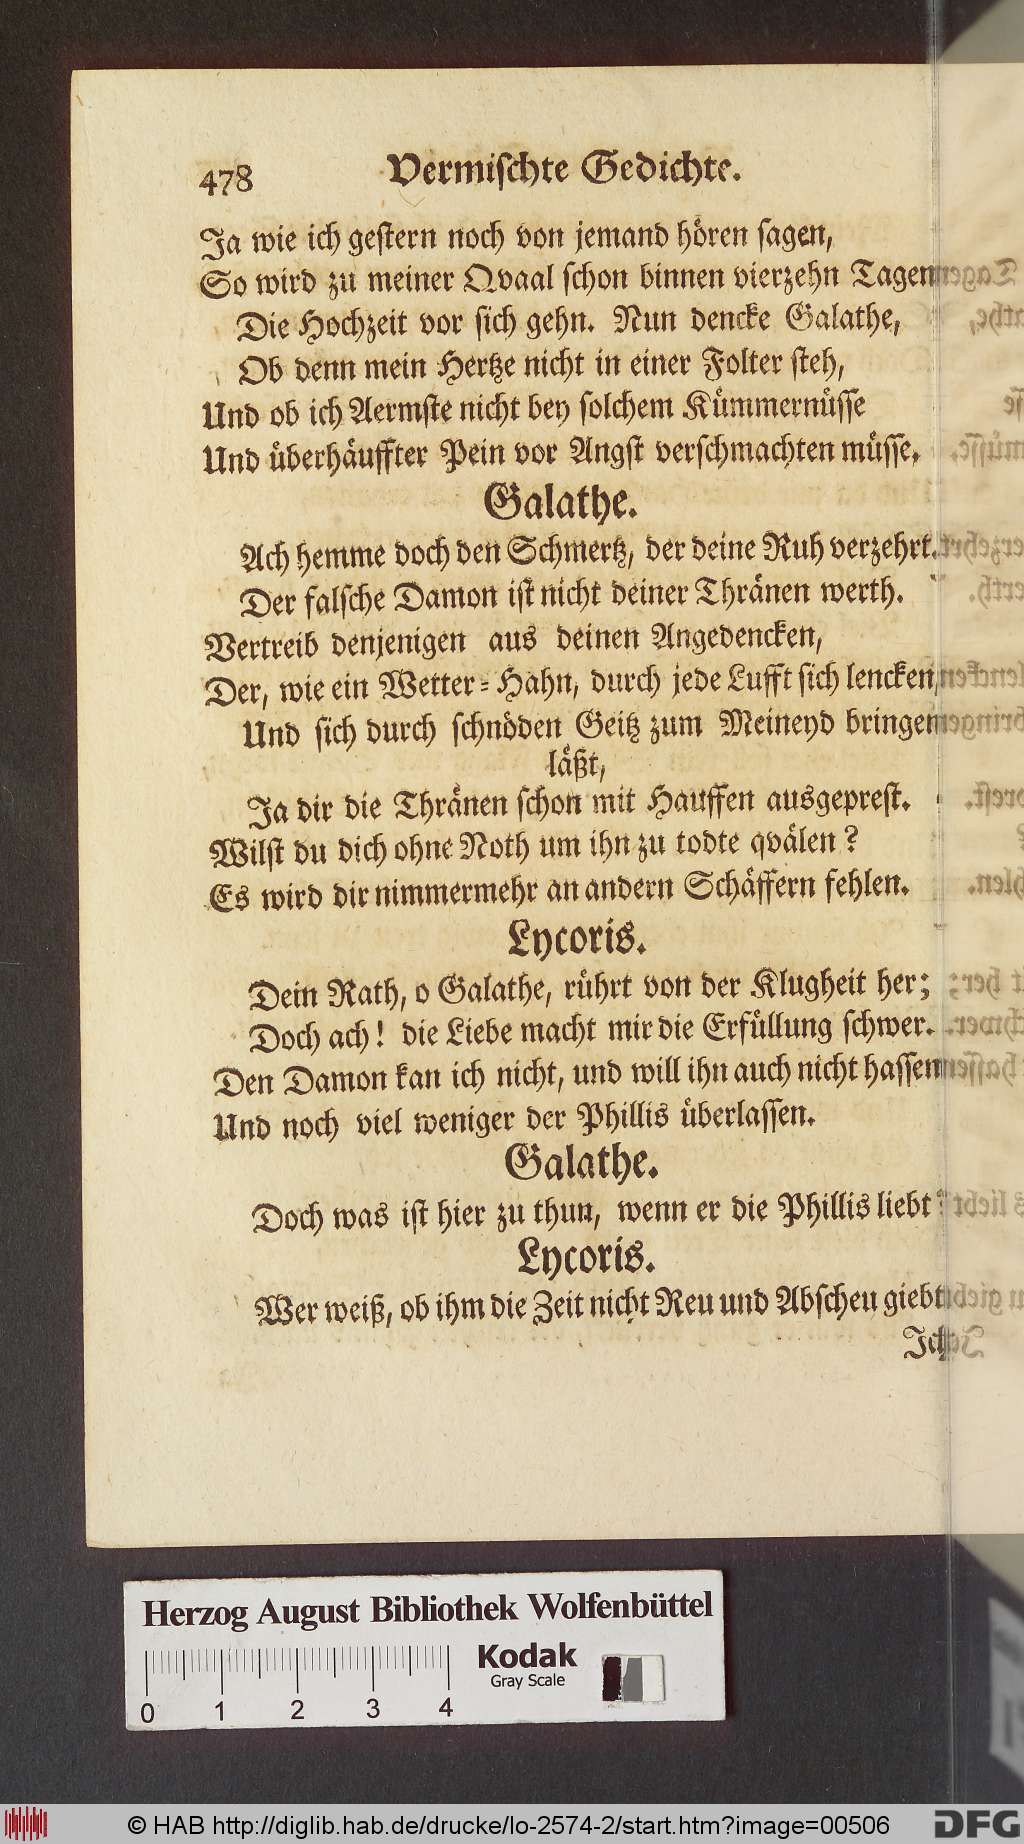 478 Vermischte Gedichte.
Ja wie ich gestern noch von jemand hören sagen,
So wird zu meiner Qvaal schon binnen vierzehn Tagen
Die Hochzeit vor sich gehn. Nun dencke Galathe,
Ob denn mein Hertze nicht in einer Folter steh,
Und ob ich Aermste nicht bey solchem Kümmernüsse
Und überhäuffter Pein vor Angst verschmachten müsse.
Galathe.
Ach hemme doch den Schmertz, der deine Ruh verzehrt.
Der falsche Damon ist nicht deiner Thränen werth.
Vertreib denjenigen aus deinen Angedencken,
Der, wie ein Wetter-Hahn, durch jede Lufft sich lencken,
Und sich durch schnöden Geitz zum Meineyd bringen
läßt,
Ja dir die Thränen schon mit Hauffen ausgeprest.
Wilst du dich ohne Noth um ihn zu todte qvälen?
Es wird dir nimmermehr an andern Schäffern fehlen.
Lycoris.
Dein Rath, o Galathe, rührt von der Klugheit her;
Doch ach! die Liebe macht mir die Erfüllung schwer.
Den Damon kan ich nicht, und will ihn auch nicht hassen
Und noch viel weniger der Phillis überlassen.
Galathe.
Doch was ist hier zu thun, wenn er die Phillis liebt?
Lycoris.
Wer weiß, ob ihm die Zeit nicht Reu und Abscheu giebt
Ich
Herzog August Bibliothek Wolfenbüttel
Kodak
Gray Scale
0 1 2 3 4
© HAB http://diglib.hab.de/drucke/lo-2574-2/start.htm?image=00506
DFG